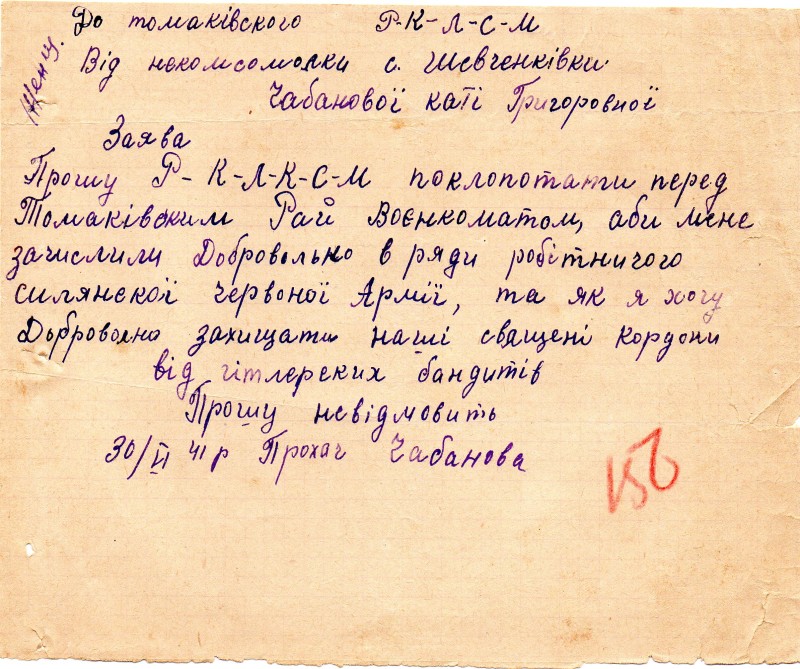 До томаківского Р-К-Л-С-М
Від некомсомолки с. Шевченківки.
Чабанової каті Григоровної
Заява
Прошу Р-К-Л-К-С-М поклопотати перед
Томаківским Рай Воєнкоматом, аби мене
зачислили Добровольно в ряди робітничого
силянскої червоної Армії, та як я хочу
Добровольно захищати наші священі кордони
від гітлерских бандитів
Прошу невідмовить
30/VI 41 р Прохач Чабанова
156